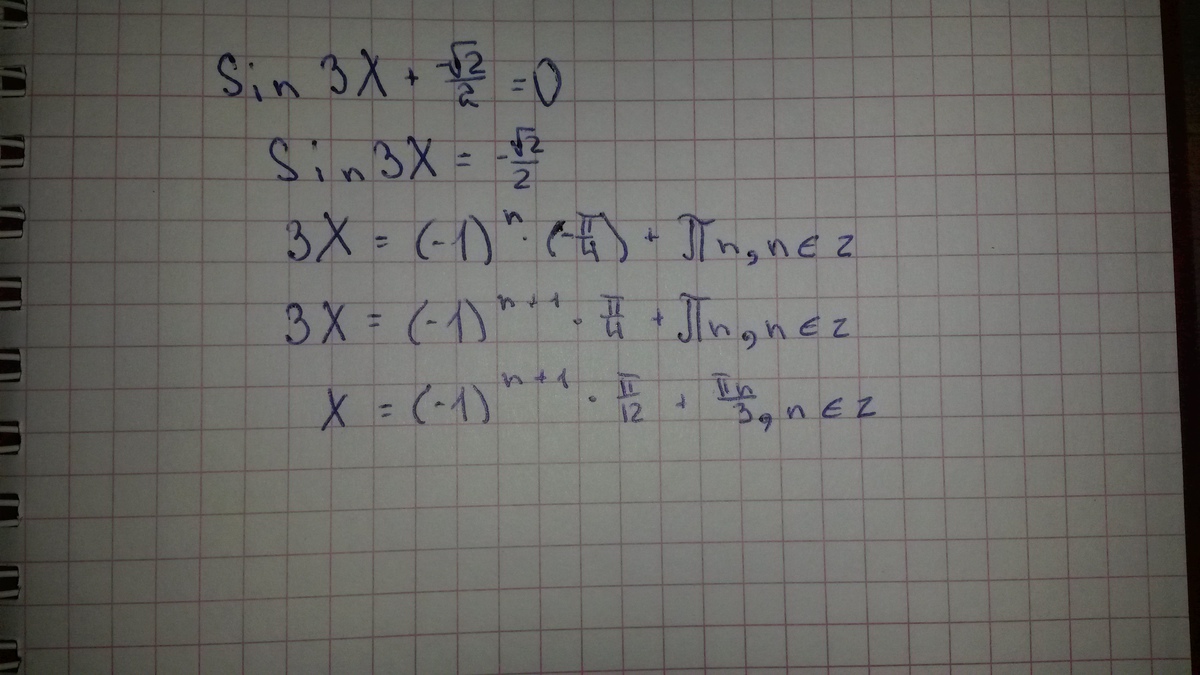 Sin 3X + -√2/2 = 0
Sin 3X = -√2/2
3X = (-1)^n · (-π/4) + πn, n ∈ z
3X = (-1)^(n+1) · π/4 + πn, n ∈ z
X = (-1)^(n+1) · π/12 + πn/3, n ∈ z